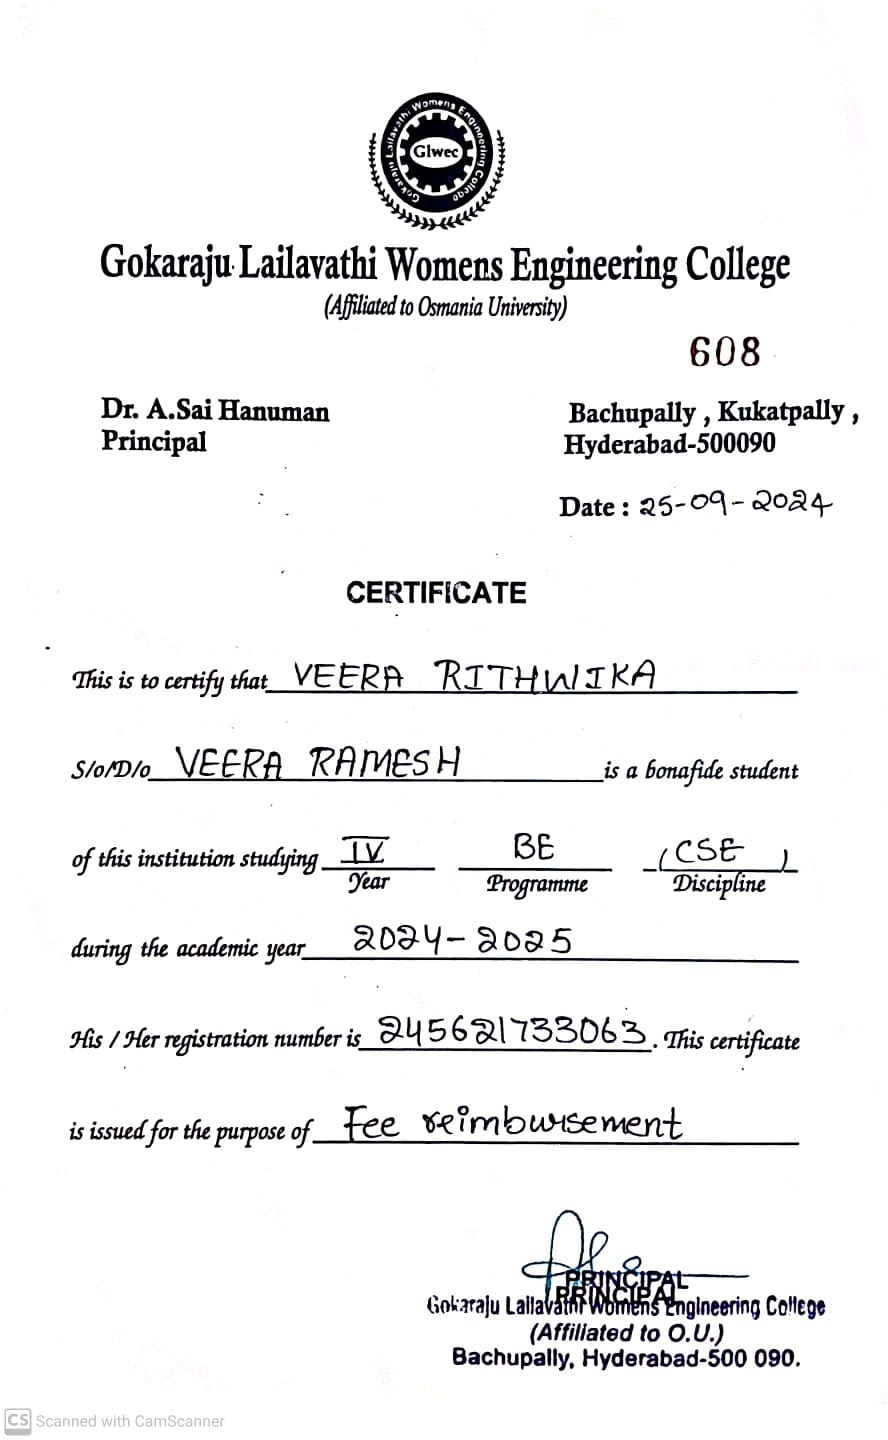 Gokaraju Lailavathi Womens Engineering College
Glwec
Gokaraju Lailavathi Womens Engineering College
(Affiliated to Osmania University)
608
Dr. A.Sai Hanuman
Principal
Bachupally , Kukatpally ,
Hyderabad-500090
Date : 25-09-2024
CERTIFICATE
This is to certify that VEERA RITHWIKA
S/o/D/o VEERA RAMESH is a bonafide student
of this institution studying IV BE (CSE)
Year Programme Discipline
during the academic year 2024-2025
His / Her registration number is 245621733063. This certificate
is issued for the purpose of Fee reimbursement
PRINCIPAL
PRINCIPAL
Gokaraju Lailavathi Womens Engineering College
(Affiliated to O.U.)
Bachupally, Hyderabad-500 090.
CS Scanned with CamScanner